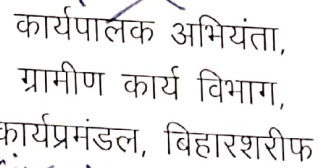 कार्यपालक अभियंता,
ग्रामीण कार्य विभाग,
कार्यप्रमंडल, बिहारशरीफ